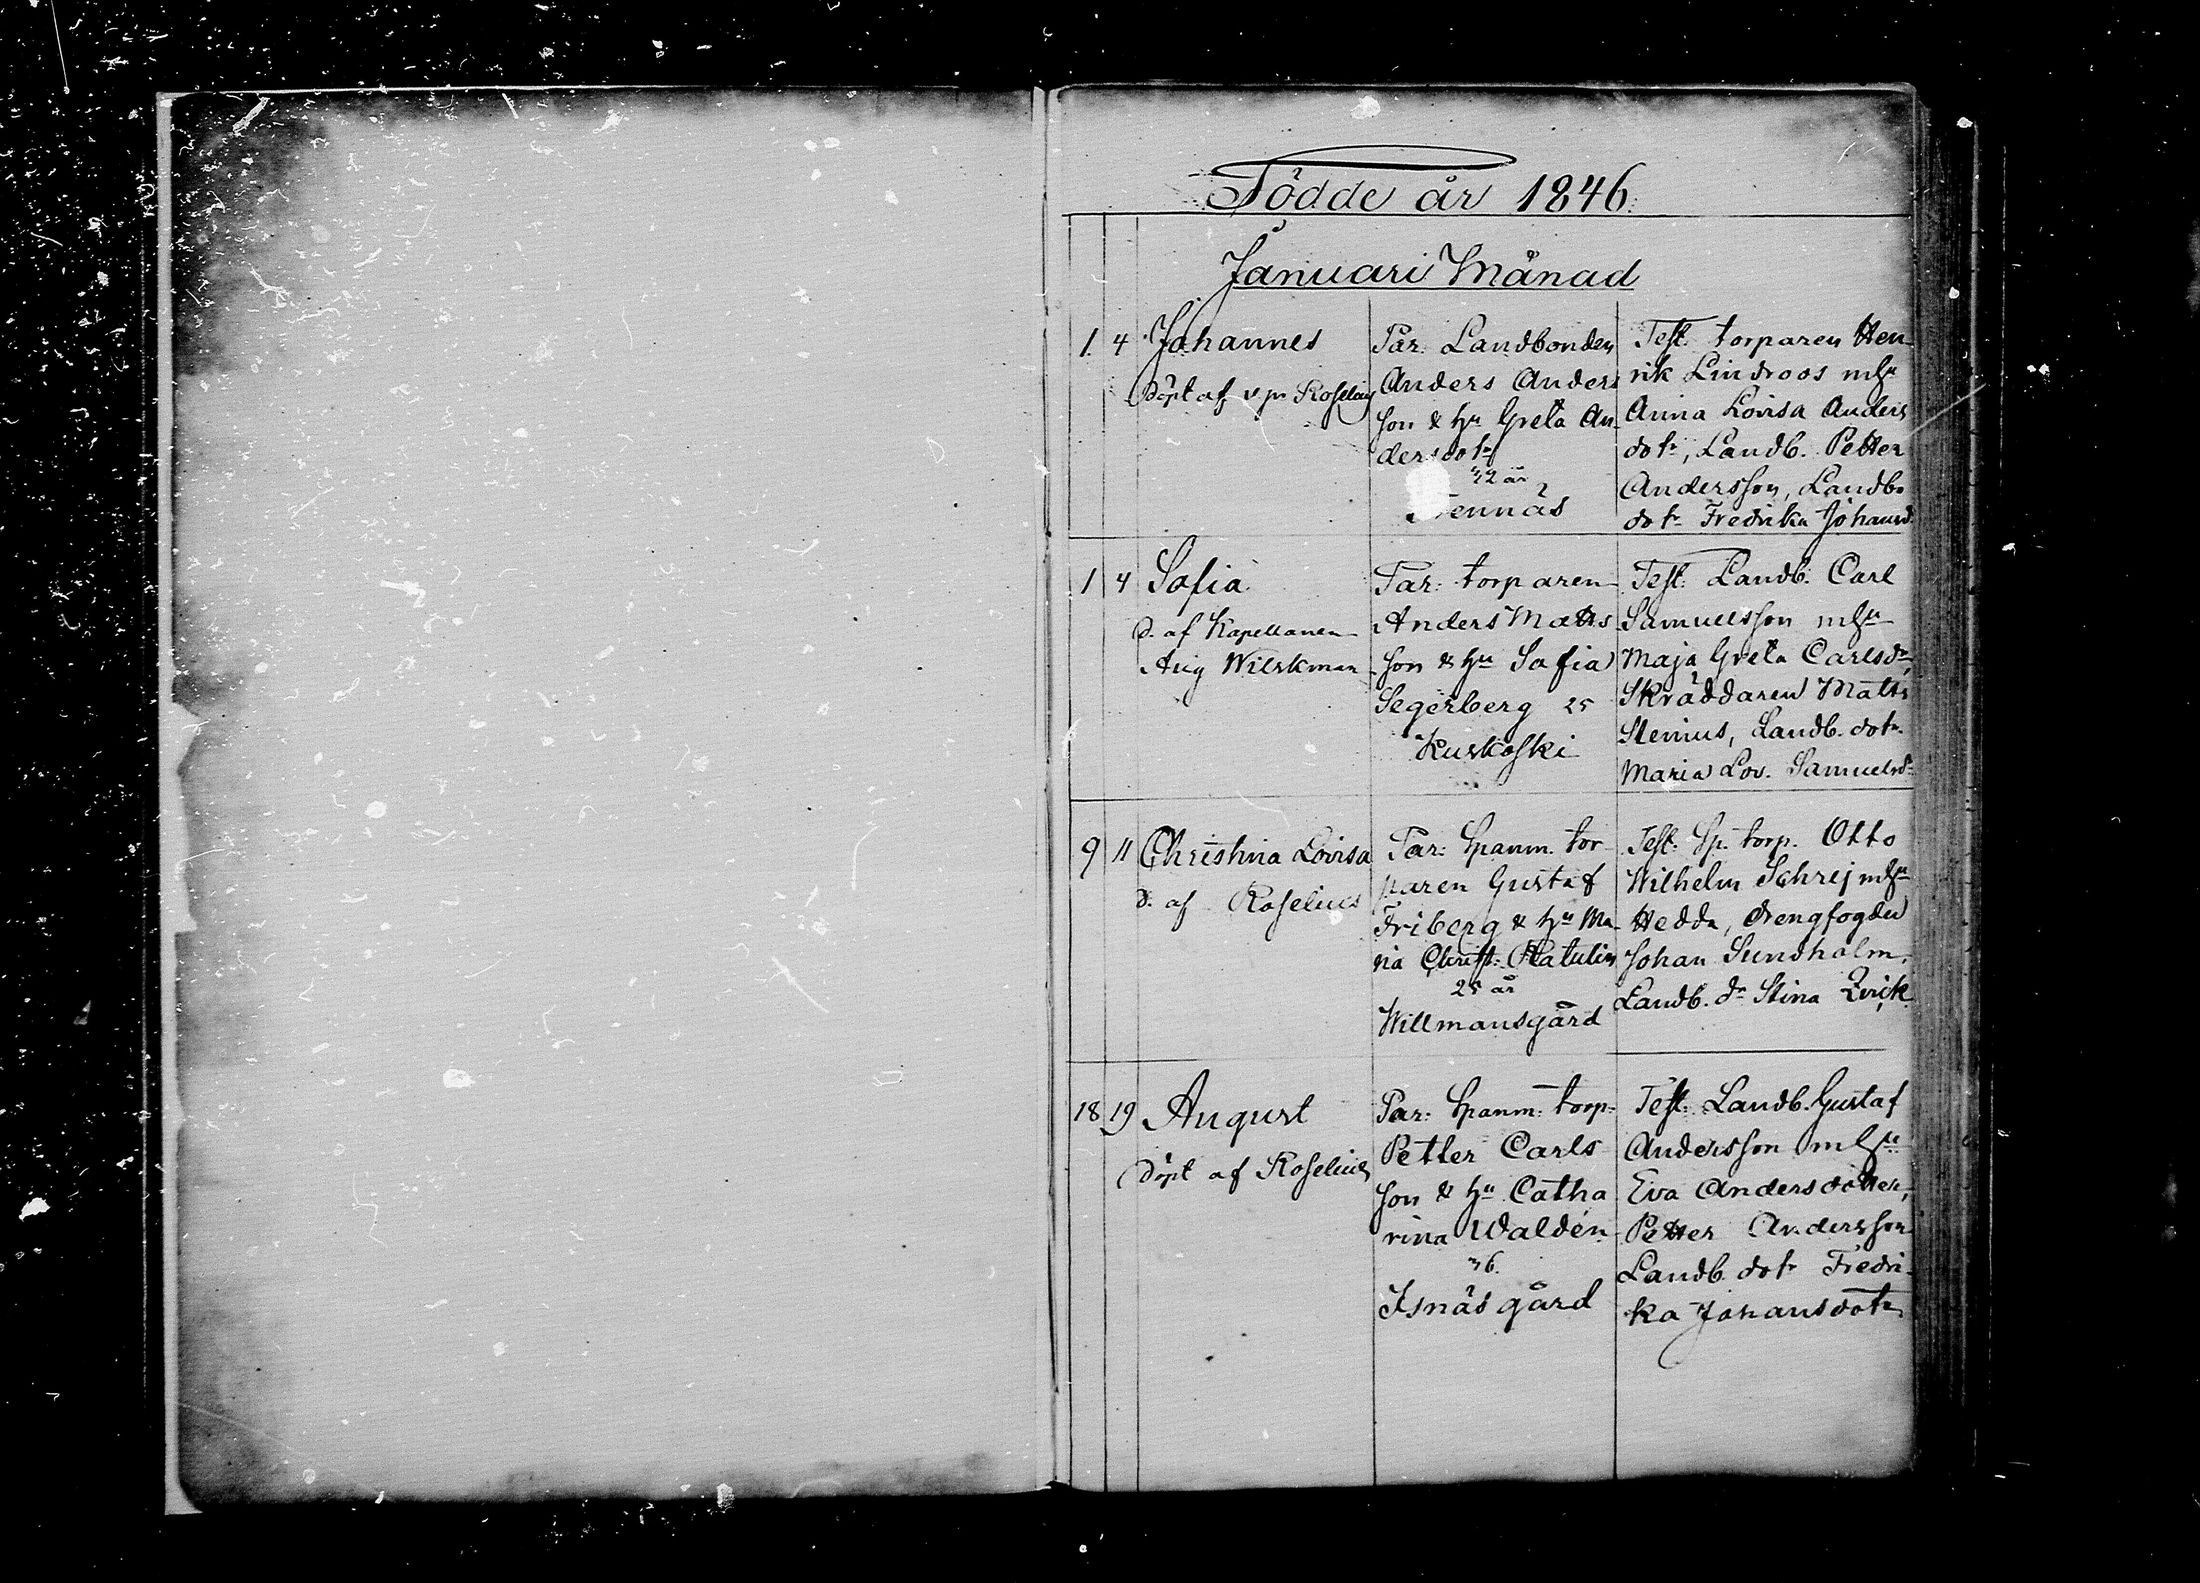 Födde år 1846.
Januari Månad
1. 4 Johannes
Döpt af v pr Roselius
Par: Landbonden
Anders Anders
son & hu Greta An-
dersdotr
42 år
ennäs
Test: torparen Hen-
rik Lindroos m hu
Anna Lovisa Anders
dotr, Landb. Petter
Andersson, Landbo
dotr Fredrika Johansd.
1 4 Sofia
d. af Kapellanen
Aug Wilskman
Par: torparen
Anders Matts
son & hu Sofia
Segerberg 25
Kuskoski
Test: Landb. Carl
Samuelsson m hu
Maja Greta Carlsdr,
Skräddaren Matts
Stenius, Landb. dotr.
Maria Lov. Samuelsdr
9 11 Christina Lovisa
d. af Roselius
Par: Spanm. tor
paren Gustaf
Friberg & hu Ma
ria Christ: Platulin
25 år
Willmansgård
Test: Sp. torp. Otto
Wilhelm Schrej m hu
Hedda, drengfogden
Johan Sundholm,
Landb. dr Stina Qvick
18 19 August
Döpt af Roselius
Par: Spanm: torp:
Petter Carls
son & hu Catha
rina Waldén
36.
Isnäs gård
Test: Landb. Gustaf
Andersson m hu
Eva Andersdotter,
Petter Andersson
Landb. dotr Fredri-
ka Johansdotr